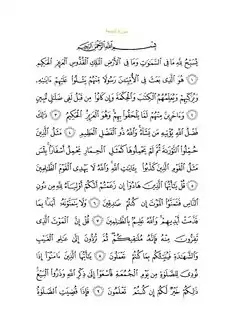 سورة الجمعة
بِسْمِ اللَّهِ الرَّحْمَٰنِ الرَّحِيمِ
يُسَبِّحُ لِلَّهِ مَا فِي السَّمَٰوَٰتِ وَمَا فِي الْأَرْضِ الْمَلِكِ الْقُدُّوسِ الْعَزِيزِ الْحَكِيمِ
١ هُوَ الَّذِي بَعَثَ فِي الْأُمِّيِّينَ رَسُولًا مِّنْهُمْ يَتْلُوا عَلَيْهِمْ ءَايَٰتِهِ
وَيُزَكِّيهِمْ وَيُعَلِّمُهُمُ الْكِتَٰبَ وَالْحِكْمَةَ وَإِن كَانُوا مِن قَبْلُ لَفِي ضَلَٰلٍ مُّبِينٍ
٢ وَءَاخَرِينَ مِنْهُمْ لَمَّا يَلْحَقُوا بِهِمْ وَهُوَ الْعَزِيزُ الْحَكِيمُ ٣ ذَٰلِكَ
فَضْلُ اللَّهِ يُؤْتِيهِ مَن يَشَاءُ وَاللَّهُ ذُو الْفَضْلِ الْعَظِيمِ ٤ مَثَلُ الَّذِينَ
حُمِّلُوا التَّوْرَىٰةَ ثُمَّ لَمْ يَحْمِلُوهَا كَمَثَلِ الْحِمَارِ يَحْمِلُ أَسْفَارًا بِئْسَ
مَثَلُ الْقَوْمِ الَّذِينَ كَذَّبُوا بِـَٔايَٰتِ اللَّهِ وَاللَّهُ لَا يَهْدِي الْقَوْمَ الظَّٰلِمِينَ
٥ قُلْ يَٰأَيُّهَا الَّذِينَ هَادُوا إِن زَعَمْتُمْ أَنَّكُمْ أَوْلِيَاءُ لِلَّهِ مِن دُونِ
النَّاسِ فَتَمَنَّوُا الْمَوْتَ إِن كُنتُمْ صَٰدِقِينَ ٦ وَلَا يَتَمَنَّوْنَهُ أَبَدًا بِمَا
قَدَّمَتْ أَيْدِيهِمْ وَاللَّهُ عَلِيمٌ بِالظَّٰلِمِينَ ٧ قُلْ إِنَّ الْمَوْتَ الَّذِي
تَفِرُّونَ مِنْهُ فَإِنَّهُ مُلَٰقِيكُمْ ثُمَّ تُرَدُّونَ إِلَىٰ عَٰلِمِ الْغَيْبِ
وَالشَّهَٰدَةِ فَيُنَبِّئُكُم بِمَا كُنتُمْ تَعْمَلُونَ ٨ يَٰأَيُّهَا الَّذِينَ ءَامَنُوا إِذَا
نُودِيَ لِلصَّلَوٰةِ مِن يَوْمِ الْجُمُعَةِ فَاسْعَوْا إِلَىٰ ذِكْرِ اللَّهِ وَذَرُوا الْبَيْعَ
ذَٰلِكُمْ خَيْرٌ لَّكُمْ إِن كُنتُمْ تَعْلَمُونَ ٩ فَإِذَا قُضِيَتِ الصَّلَوٰةُ